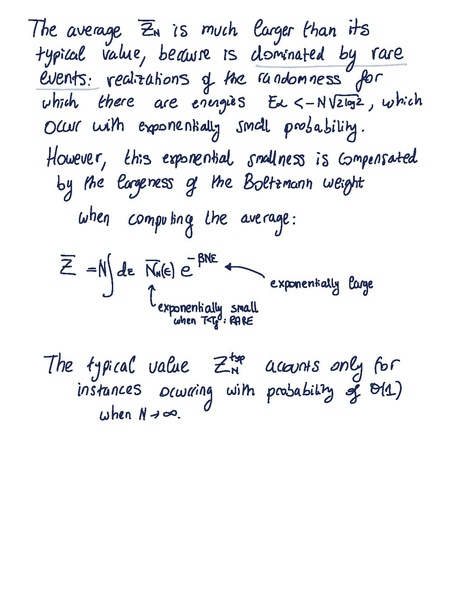 The average Z̅_N is much larger than its
typical value, because is dominated by rare
events: realizations of the randomness for
which there are energies Eα < -N√2log2, which
occur with exponentially small probability.
However, this exponential smallness is compensated
by the largeness of the Boltzmann weight
when computing the average:
Z̅ = N∫dε N̅_N(ε) e^{-βNε}
exponentially large
exponentially small
when T<Tg: RARE
The typical value Z_N^{typ} accounts only for
instances occurring with probability of O(1)
when N→∞.